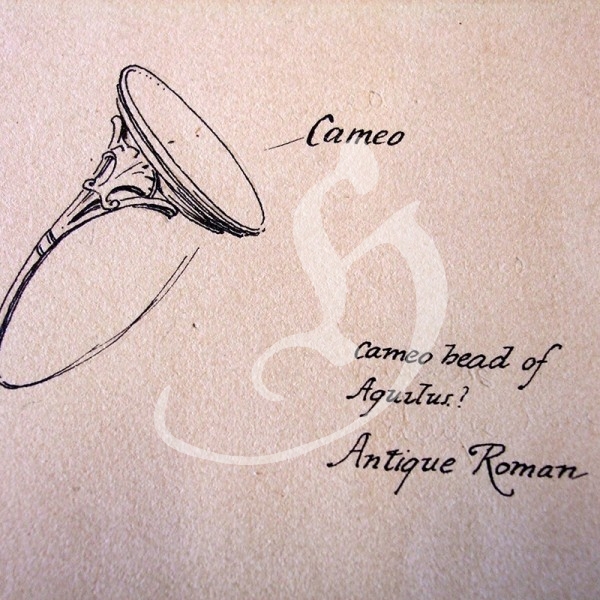 Cameo
cameo head of
Aquilus.?
Antique Roman